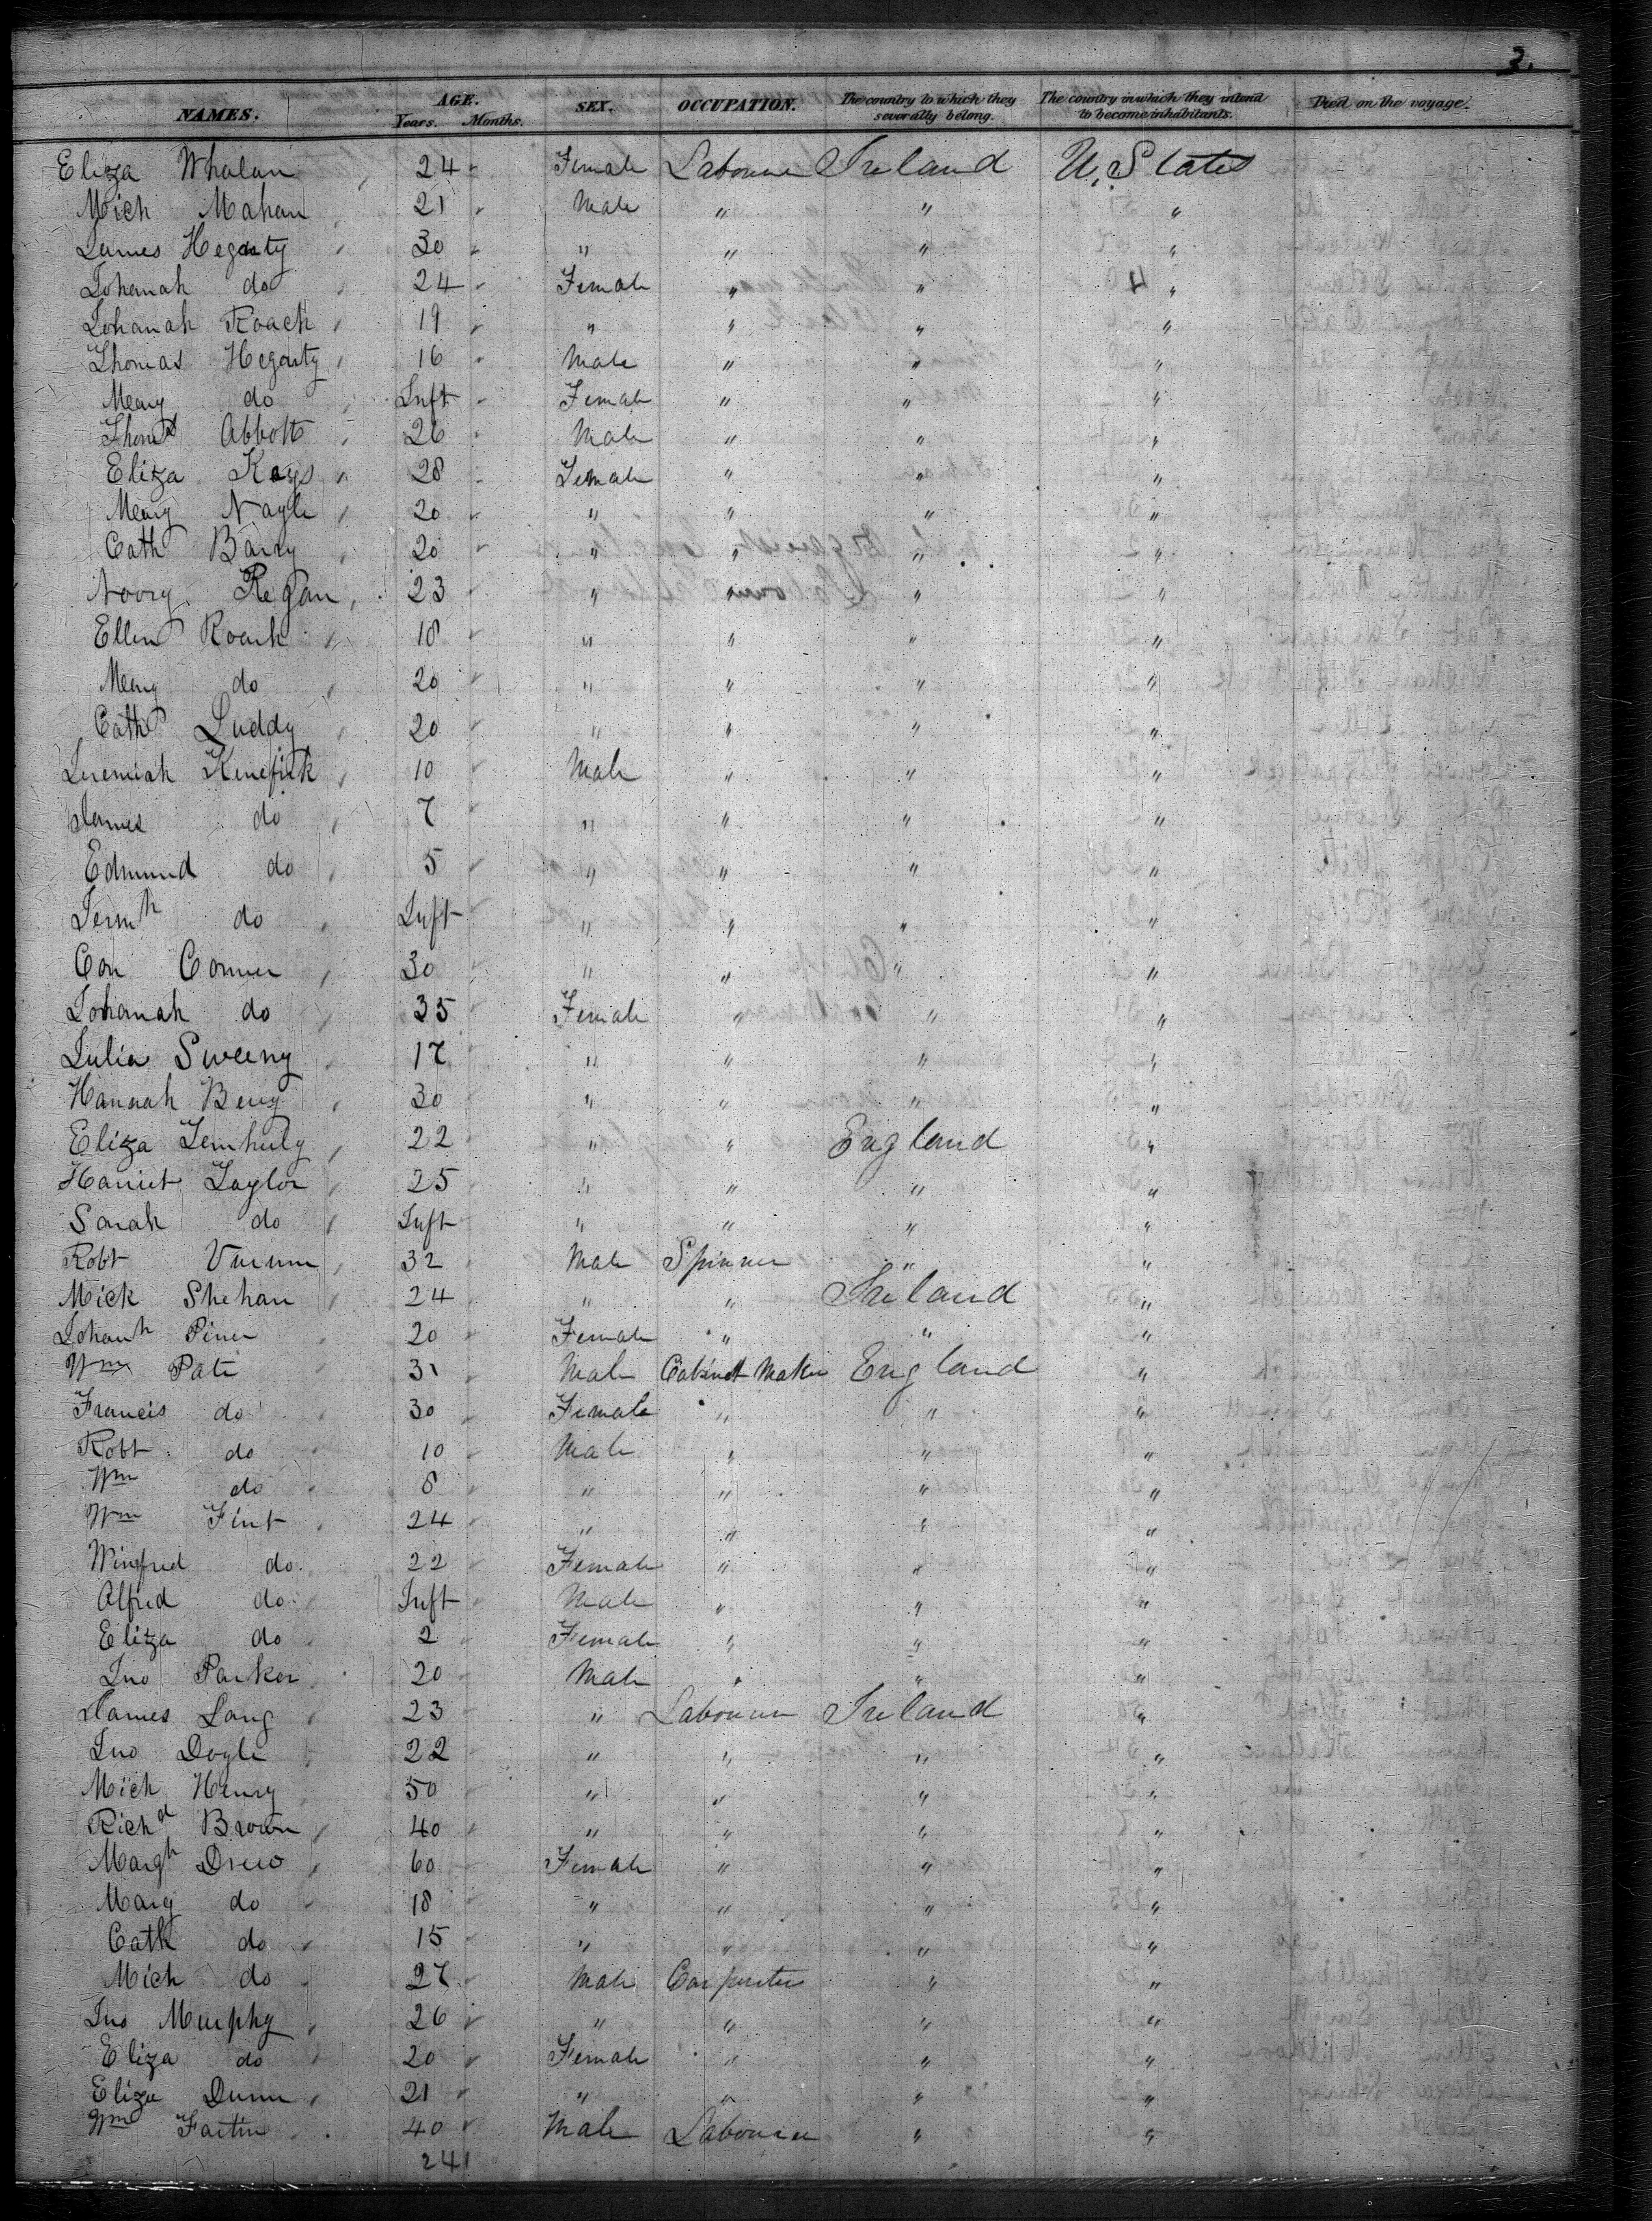 3.
NAMES. AGE. Years. Months. SEX. OCCUPATION. The country to which they severally belong. The country in which they intend to become inhabitants. Died on the voyage.
Eliza Whalan 24 Female Labourer Ireland U. States
Mich Mahan 21 Male " " "
James Hegarty 30 " " " "
Johanah do 24 Female " " 4 "
Johanah Roach 19 " " " "
Thomas Hegarty 16 Male " " "
Meary do Inft Female " " "
Thoms Abbott 26 Male " " "
Eliza Kays 28 Female " " "
Meary Nagle 20 " " " "
Cath Barry 20 " " " "
Noory Regan 23 " " " "
Ellen Roark 18 " " " "
Meary do 20 " " " "
Cath Luddy 20 " " " "
Jeremiah Kenefick 10 Male " " "
James do 7 " " " "
Edmund do 5 " " " "
Jermh do Inft " " " "
Con Conner 30 " " " "
Johanah do 35 Female " " "
Julia Sweeny 17 " " " "
Hannah Berry 30 " " " "
Eliza 22 " " England "
Harriet Taylor 25 " " " "
Sarah do Inft " " " "
Robt 32 Male Spinner " "
Mick Shehan 24 " " Ireland "
Johanh 20 Female " " "
Wm Pate 31 Male Cabinet Maker England "
Francis do 30 Female " " "
Robt do 10 Male " " "
Wm do 8 " " " "
Wm Fint 24 " " " "
Winifred do 22 Female " " "
Alfred do Inft Male " " "
Eliza do 2 Female " " "
Jno Parker 20 Male " " "
James Lang 23 " Labourer Ireland "
Jno Doyle 22 " " " "
Mich Henry 50 " " " "
Richd Brown 40 " " " "
Margh Drew 60 Female " " "
Mary do 18 " " " "
Cath do 15 " " " "
Mich do 27 Male Carpenter " "
Jno Murphy 26 " " " "
Eliza do 20 Female " " "
Eliza Dunn 21 " " " "
Wm 40 Male Labourer " "
241